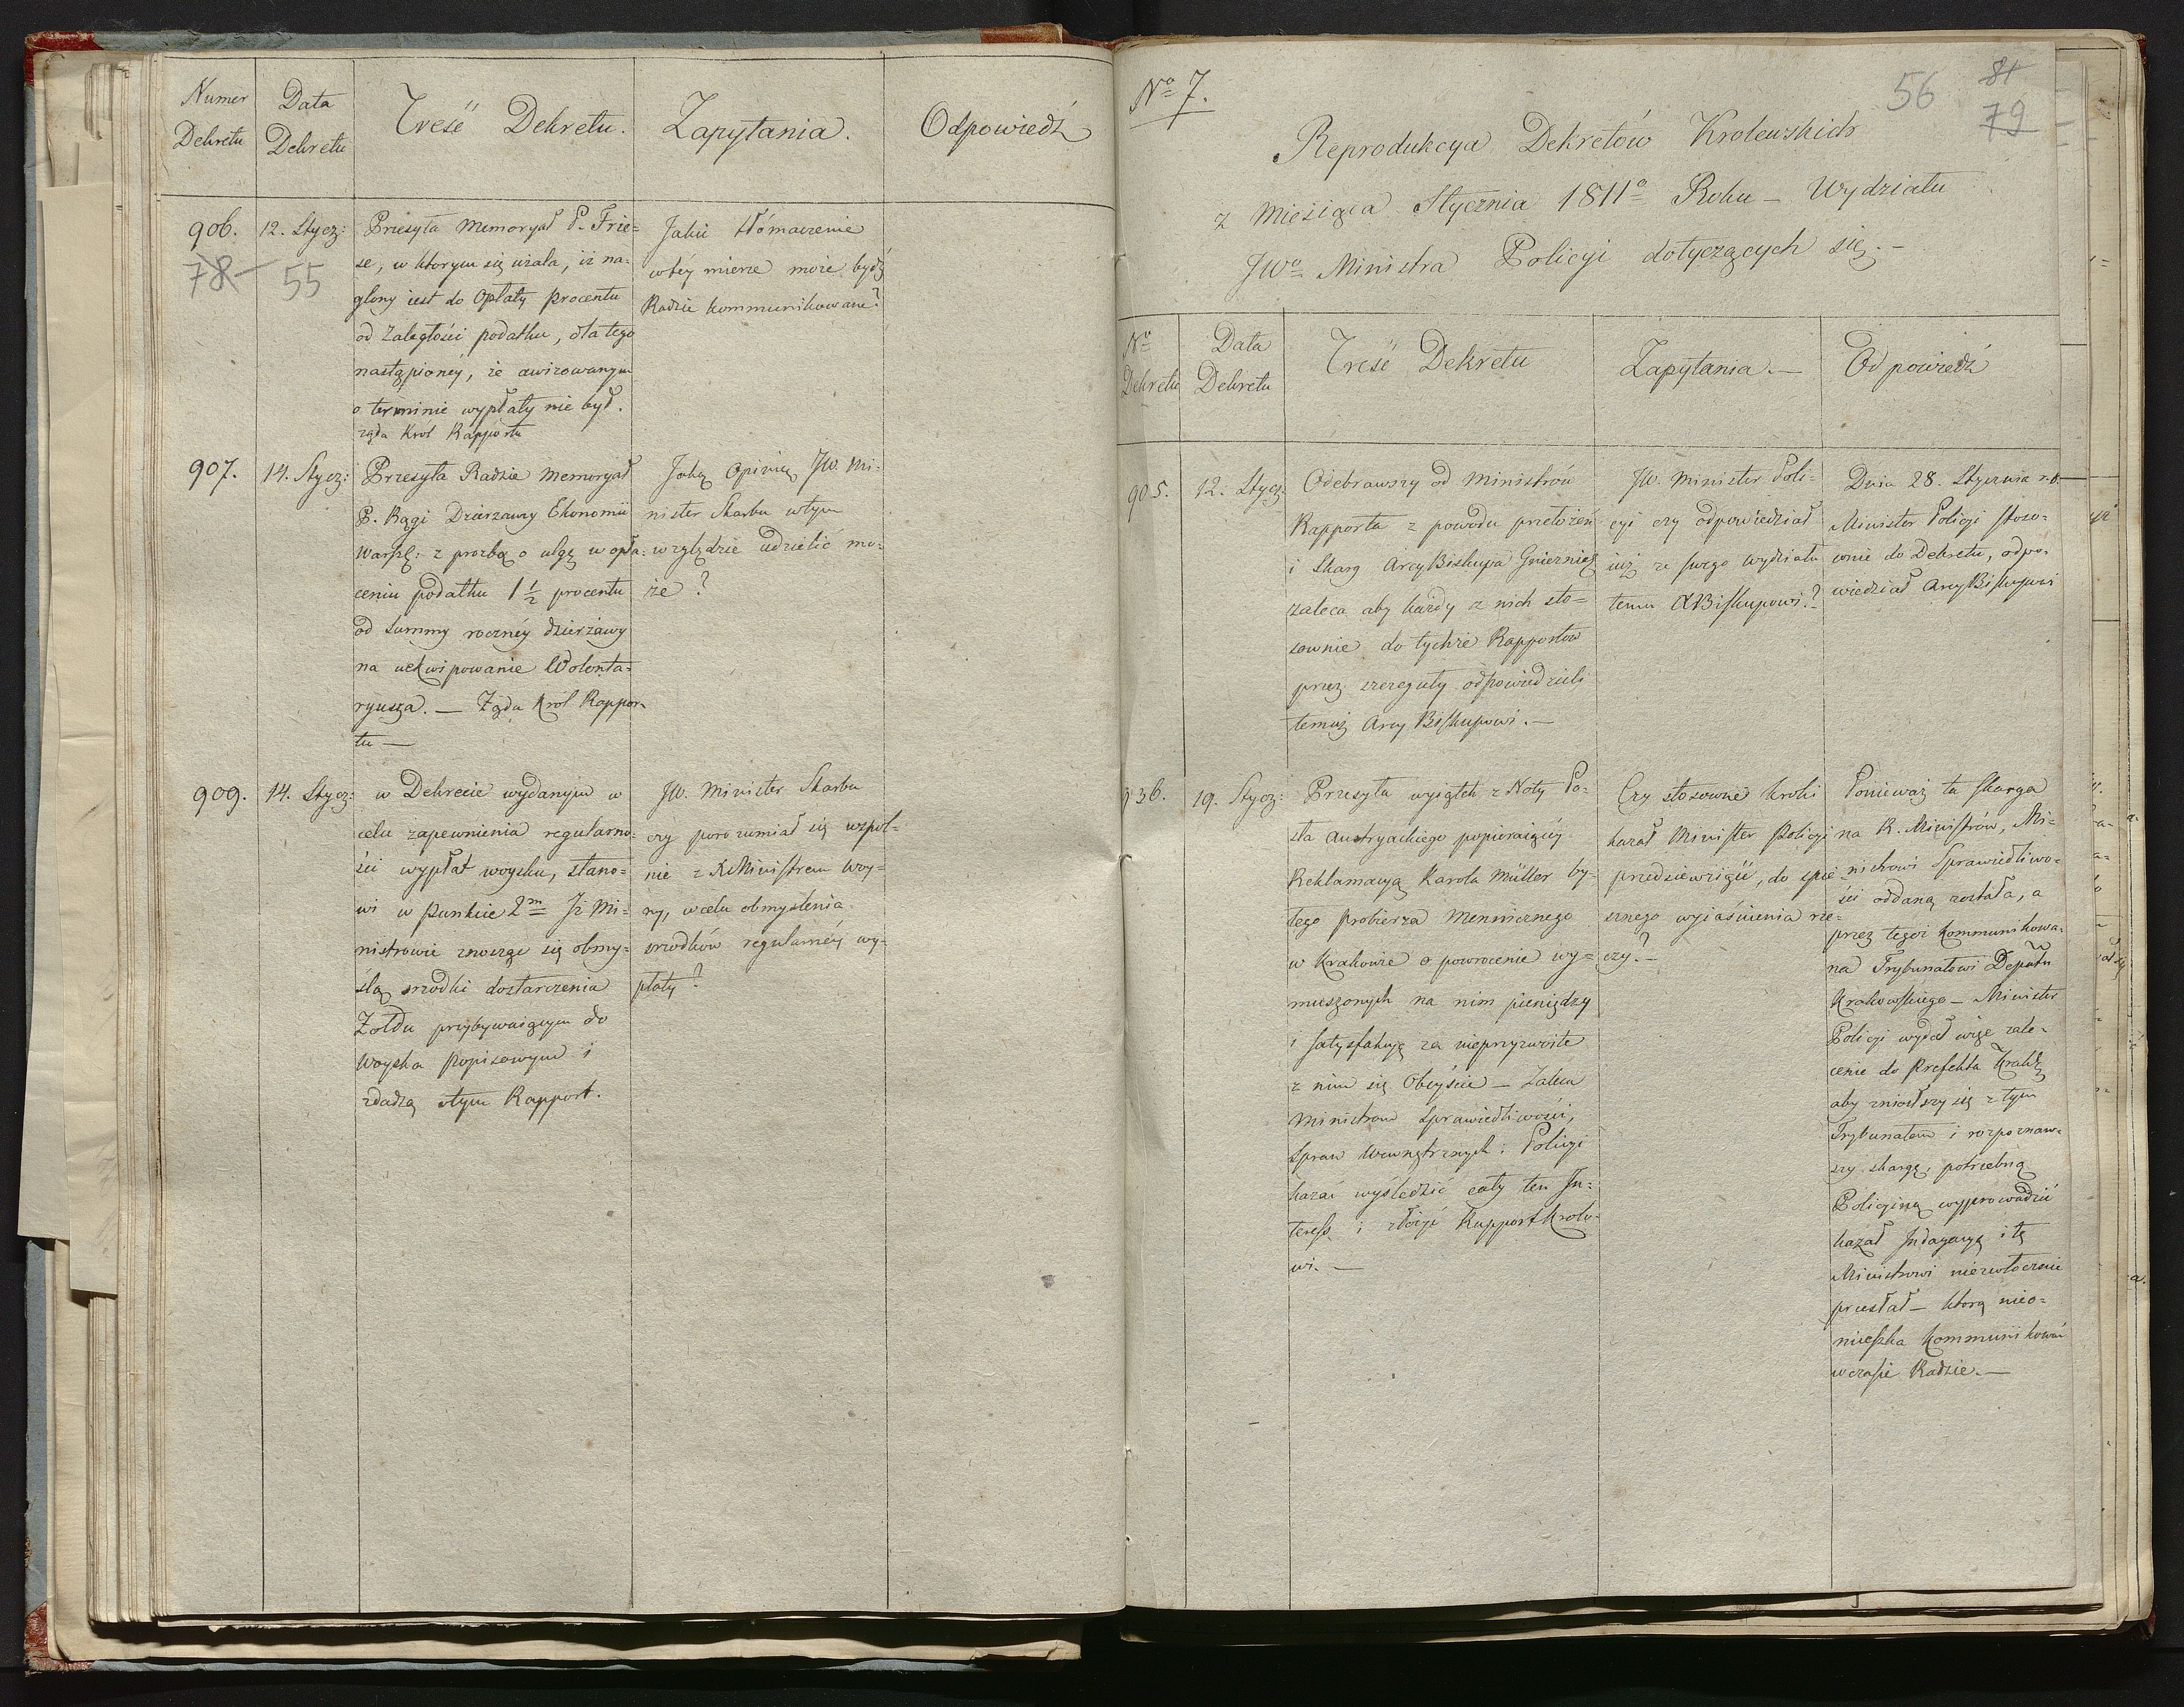 Numer
Dekretu
Data
Dekretu
Treść Dekretu.
Zapytania.
Odpowiedź
906.
78
55
12. Stycz:
Przesyła Memoryał P. Frie=
se, w ktorym się użala, iż na=
glony iest do Opłaty procentu
od zaległości podatku, dla tego
nastąpioney, że awizowanym
o terminie wypłaty nie był.
żąda Król Rapportu
Jakie tłómaczenie
w tey mierze może bydź
Radzie kommunikowane?
907.
14. Stycz:
Przesyła Radzie Memoryał
P. Rągi Dzierzawcy Ekonomii
Warsz: z prozbą o ulgę w opła=
ceniu podatku 1 1/2 procentu
od Summy roczney dzierżawy
na uekwipowanie Wolonta=
ryusza. — Żąda Król Rappor=
tu —
Jaką Opinią JW. Mi=
nister Skarbu w tym
względzie udzielić mo=
że?
909.
14. Stycz:
w Dekrecie wydanym w
celu zapewnienia regularno=
ści wypłat woysku, stano=
wi w punkcie 2m Iż Mi=
nistrowie znosząc się obmy=
ślą srzodki dostarczenia
Żołdu przybywaiącym do
Woyska Popisowym i
zdadzą o tym Rapport.
JW. Minister Skarbu
czy porozumiał się wspol=
nie z JW Ministrem Woy=
ny, w celu obmyslenia
srzodków regularney wy=
płaty?
No 7.
56
81
79
Reprodukcya Dekretów Krolewskich
z Miesiąca Stycznia 1811o Roku — Wydziału
JWo Ministra Policyi dotyczących się. —
No
Dekretu
Data
Dekretu
Treść Dekretu
Zapytania. —
Odpowiedź
905.
12. Stycz:
Odebrawszy od Ministrów
Rapporta z powodu przełożeń
i Skarg Arcy Biskupa Gnieznieg
zaleca aby każdy z nich sto=
sownie do tychże Rapportow
przez szczeguły odpowiedzieli
temuż Arcy Biskupowi. —
JW. Minister Poli=
cyi czy odpowiedział
iuż ze swego wydziału
temu A Biskupowi?
Dnia 28. Stycznia r. b.
Minister Policyi stoso=
wnie do Dekretu, odpo=
wiedział Arcy Biskupowi
936.
19. Stycz:
Przesyła wyiątek z Noty Po=
sła Austryackiego popieraiącey
Reklamacyą Karola Müller by=
łego probierza Menniczego
w Krakowie o powrocenie wy=
muszonych na nim pieniędzy
i satysfakcyą za nieprzyzwoite
z nim się Obeyście — Zaleca
Ministrom Sprawiedliwości,
Spraw Wewnętrznych i Policyi
kazać wyśledzić cały ten In=
teress i złożyć Rapport Krolo=
wi. —
Czy stosowne kroki
kazał Minister Policyi
przedsiewziąść, do spie=
sznego wyiaśnienia rze=
czy? —
Ponieważ ta skarga
na R. Ministrów, Mi=
nistrowi Sprawiedliwo=
ści oddaną została, a
przez tegoż kommunikowa=
na Trybunałowi Departu
Krakowskiego — Minister
Policyi wydał więc zale=
cenie do Prefekta Krakk
aby zniosłszy się z tym
Trybunałem i rozpoznaw=
szy skargę, potrzebną
Policyiną wyprowadzić
kazał Indagacyą i tę
Ministrowi niezwłocznie
przesłał — którą nieo=
mieszka kommunikować
w czasie Radzie. —